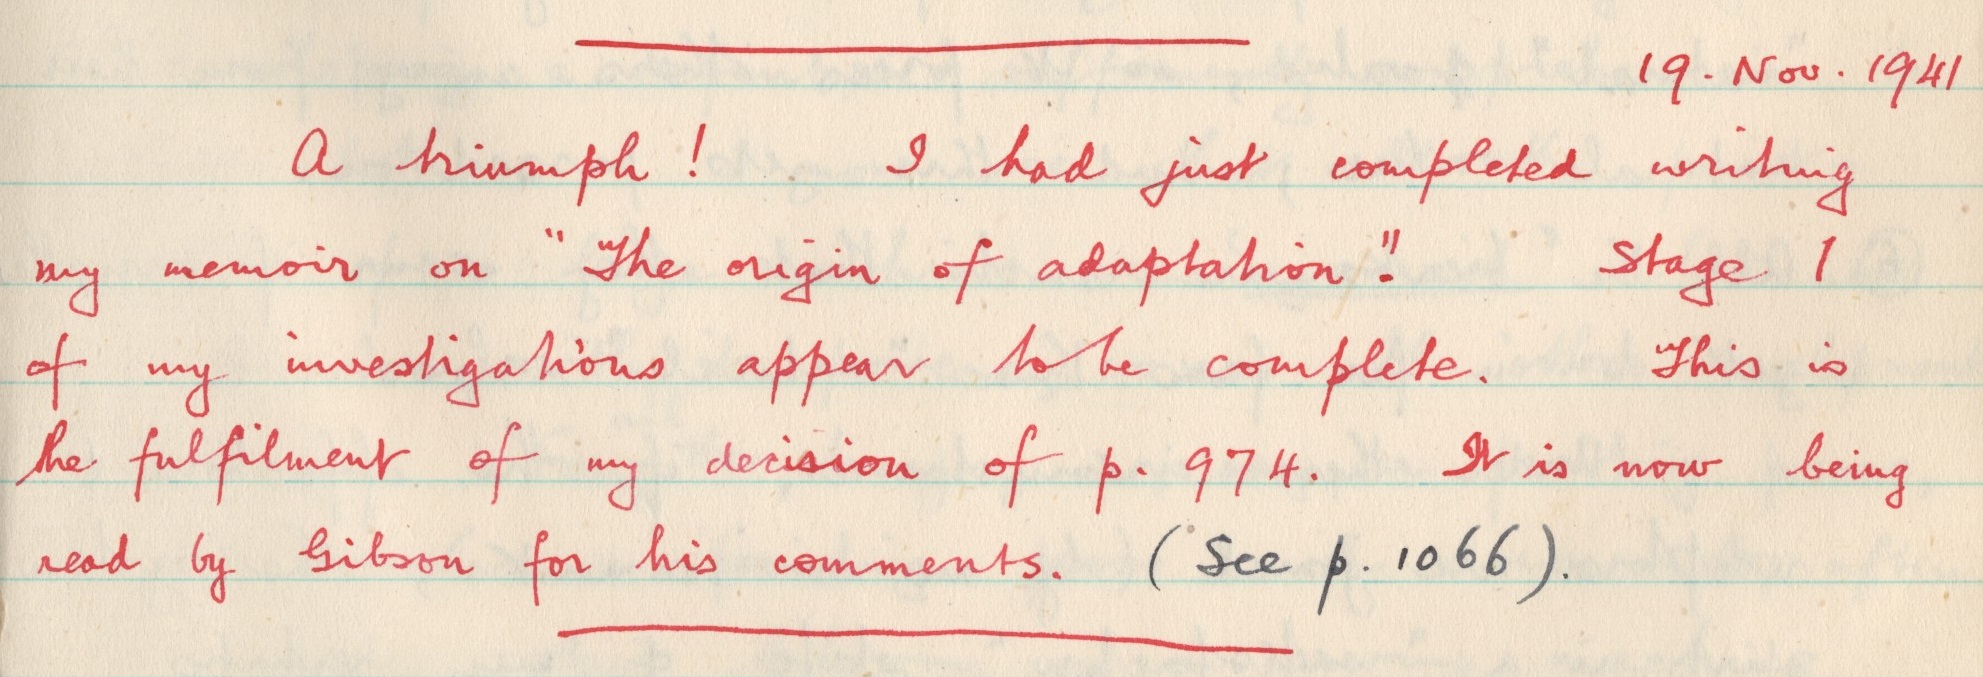 19. Nov. 1941
A triumph! I had just completed writing
my memoir on "The origin of adaptation". Stage 1
of my investigations appear to be complete. This is
the fulfilment of my decision of p. 974. It is now being
read by Gibson for his comments. (See p. 1066).